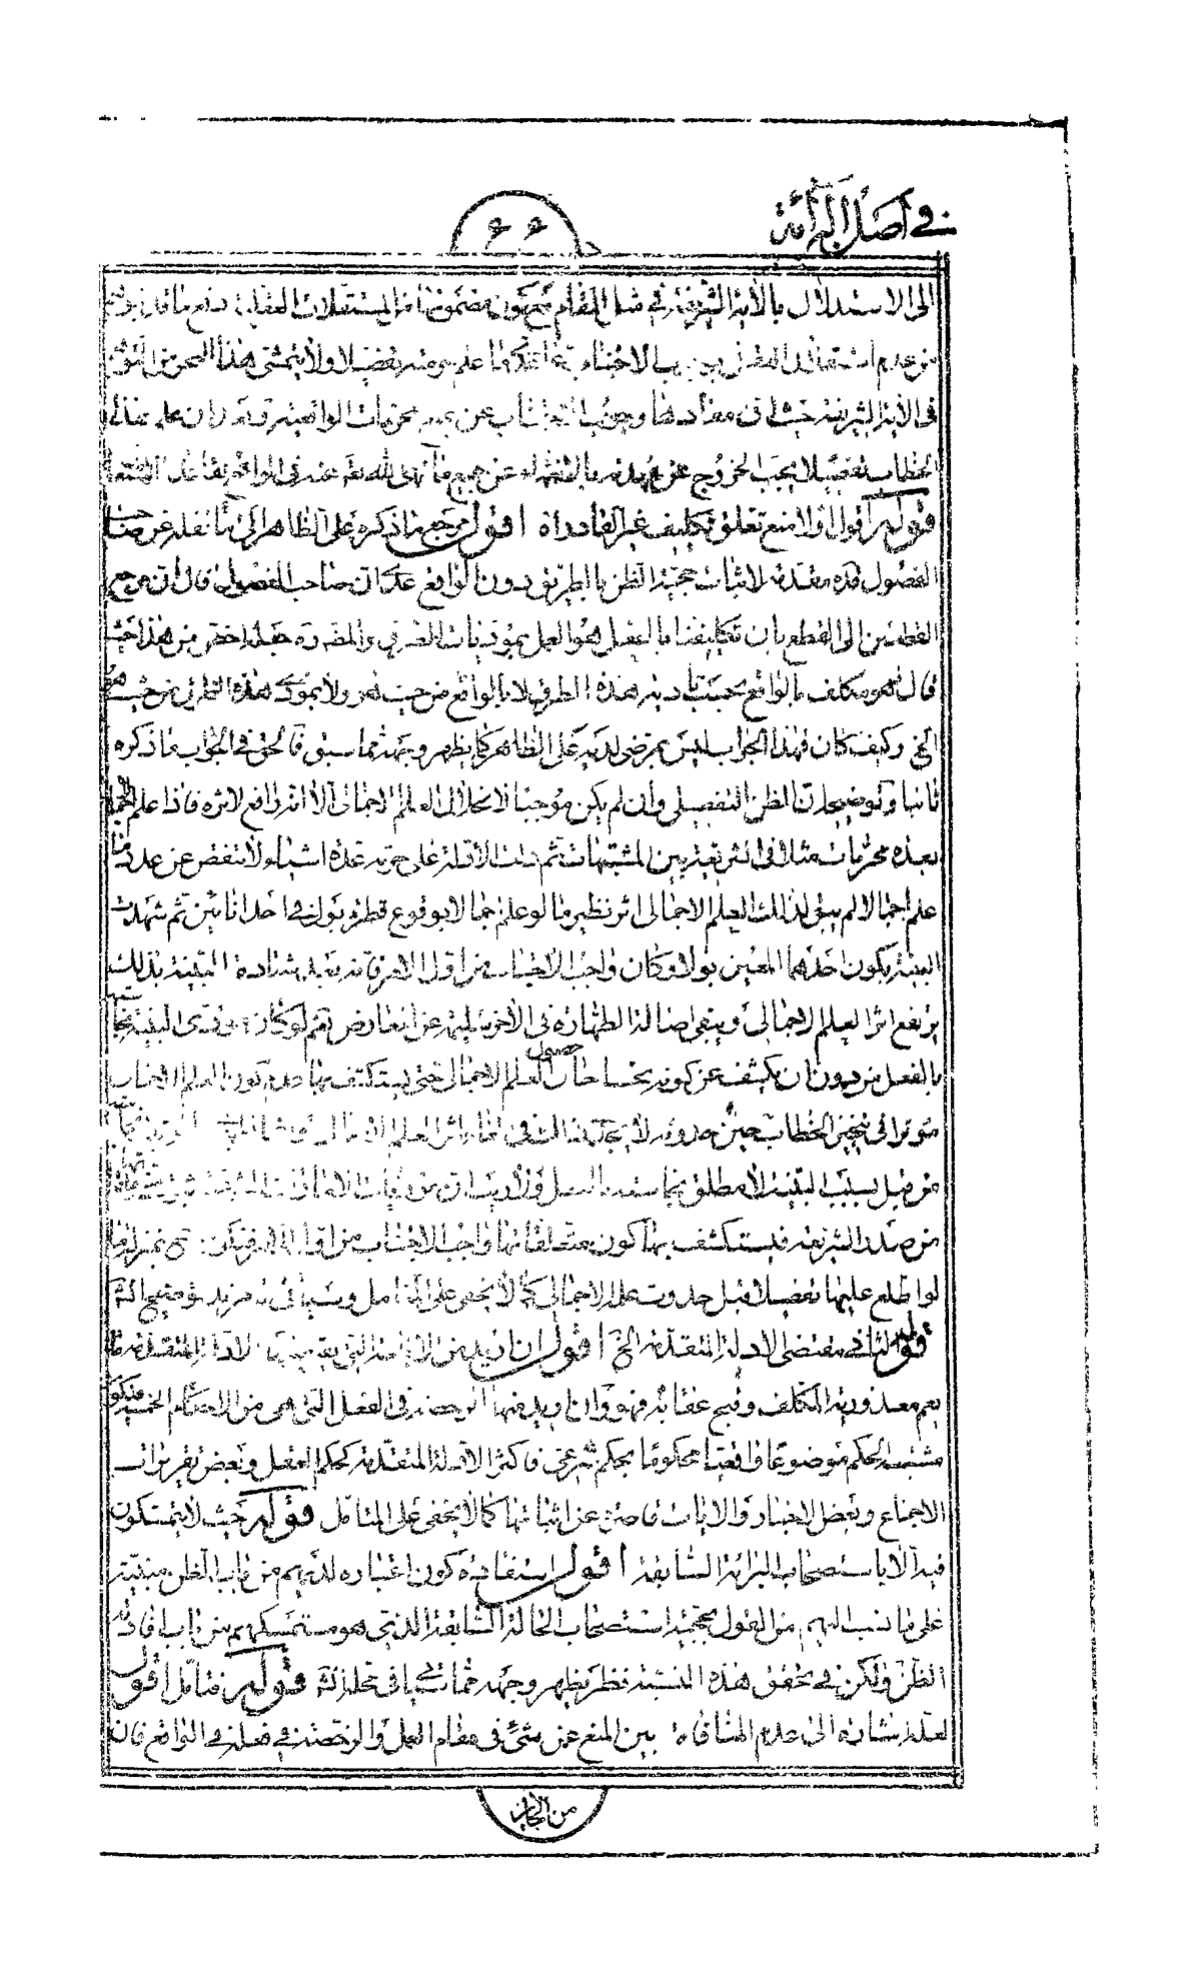 في أصل البرائة
٦٦
الى الاستدلال بالأية الشريفة في مثل المقام مع كون مضمونها من المستقلات العقلية
من عدم استقلال العقل بوجوب الاجتناب عما علم حرمته تفصيلا ولا يتمشى هذا النحو من
في الأية الشريفة حيث ان مفادها وجوب الاجتناب عن المحرمات الواقعية
الخطاب تفصيلا يجب الخروج عن عهدته بالانتهاء عن جميع ما نهى الله تعالى عنه في الواقع بقاعدة
قوله أقول اولا منع تعلق تكليف غير القادر اه اقول مرجع ما ذكره على الظاهر الى ما نقله عن صاحب
الفصول قده مقدمة لاثبات حجية الظن بالطريق دون الواقع عدا ان صاحب الفصول قال ان مرجع
القطعين الى القطع بان تكليفنا بالفعل هو العمل بمؤديات الطرق والمصنف ره جعله اخص من هذا حيث
قال فهو مكلف بالواقع بحسب تأدية هذه الطرق لا بالواقع من حيث هو ولا بمؤدى هذه الطرق من حيث هو
الخ وكيف كان فهذا الجواب ليس بمرضى لديه على الظاهر كما يظهر وجهه مما سبق فالحق في الجواب ما ذكره
ثانيا وتوضيحه ان الظن التفصيلى وان لم يكن موجبا لانحلال العلم الاجمالى الا انه رافع لاثره فاذا علم اجمالا
بعدة محرمات مثلا في الشريعة بين المشتبهات ثم دلت الادلة على حرمة عدة اشياء لا تنقص عن عدد ما
علم اجمالا لم يبق لذلك العلم الاجمالى اثر نظير ما لو علم اجمالا بوقوع قطرة بول في احد انائين ثم شهدت
البينة بكون احدهما المعين بولا وكان واجب الاجتناب من اول الامر فانه بعد شهادة البينة بذلك
يرتفع اثر العلم الاجمالى ويبقى اصالة الطهارة في الأخر سليمة عن المعارض نعم لو كان مؤدى البينة نجاسته
بالفعل من دون ان يكشف عن كونه نجسا حال حصول العلم الاجمالى حتى يستكشف بها عدم كون العلم الاجمالى
مؤثرا في تنجيز الخطاب حين حدوثه لا يجدى ذلك في الغاء اثر العلم
من قبل بسبب البينة لا مطلق نجاسته بالفعل ولا ريب ان مؤديات الامارات
من صدر الشريعة فيستكشف بها كون متعلقاتها واجب الاجتناب من اول الامر فيكون ح بمنزلة ما
لو اطلع عليها تفصيلا قبل حدوث علمه الاجمالى كما لا يخفى على المتأمل وسيأتى له مزيد توضيح انشاء الله
قوله الثانى مقتضى الادلة المتقدمة الخ اقول ان اريد من الاباحة التي يقتضيها الادلة المتقدمة ما
يعم معذورية المكلف وقبح عقابه فهو وان اريد منها الرخصة في الفعل التي هي من الاحكام الخمسة فيكون
مشتبه الحكم موضوعا واقعيا محكوما بحكم شرعى فاكثر الادلة المتقدمة كحكم العقل وبعض تقريرات
الاجماع وبعض الاخبار والايات قاصرة عن اثباتها كما لا يخفى على المتأمل قوله حيث لا يتمسكون
فيه الا باستصحاب البرائة السابقة اقول استفادة كون اعتباره لديهم من باب الظن مبنية
على ما نسب اليهم من القول بحجية استصحاب الحالة السابقة الذي هو متمسكهم من باب افادته
الظن ولكن في تحقق هذه النسبة نظر يظهر وجهه مما سيأتى في محله انشاء الله قوله فتأمل اقول
لعله اشارة الى عدم المنافاة بين المنع عن شئ في مقام العمل والرخصة في فعله في الواقع فان
من الجائز